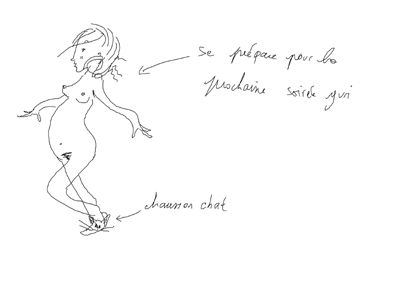 se prépare pour la
prochaine soirée yuri
chausson chat